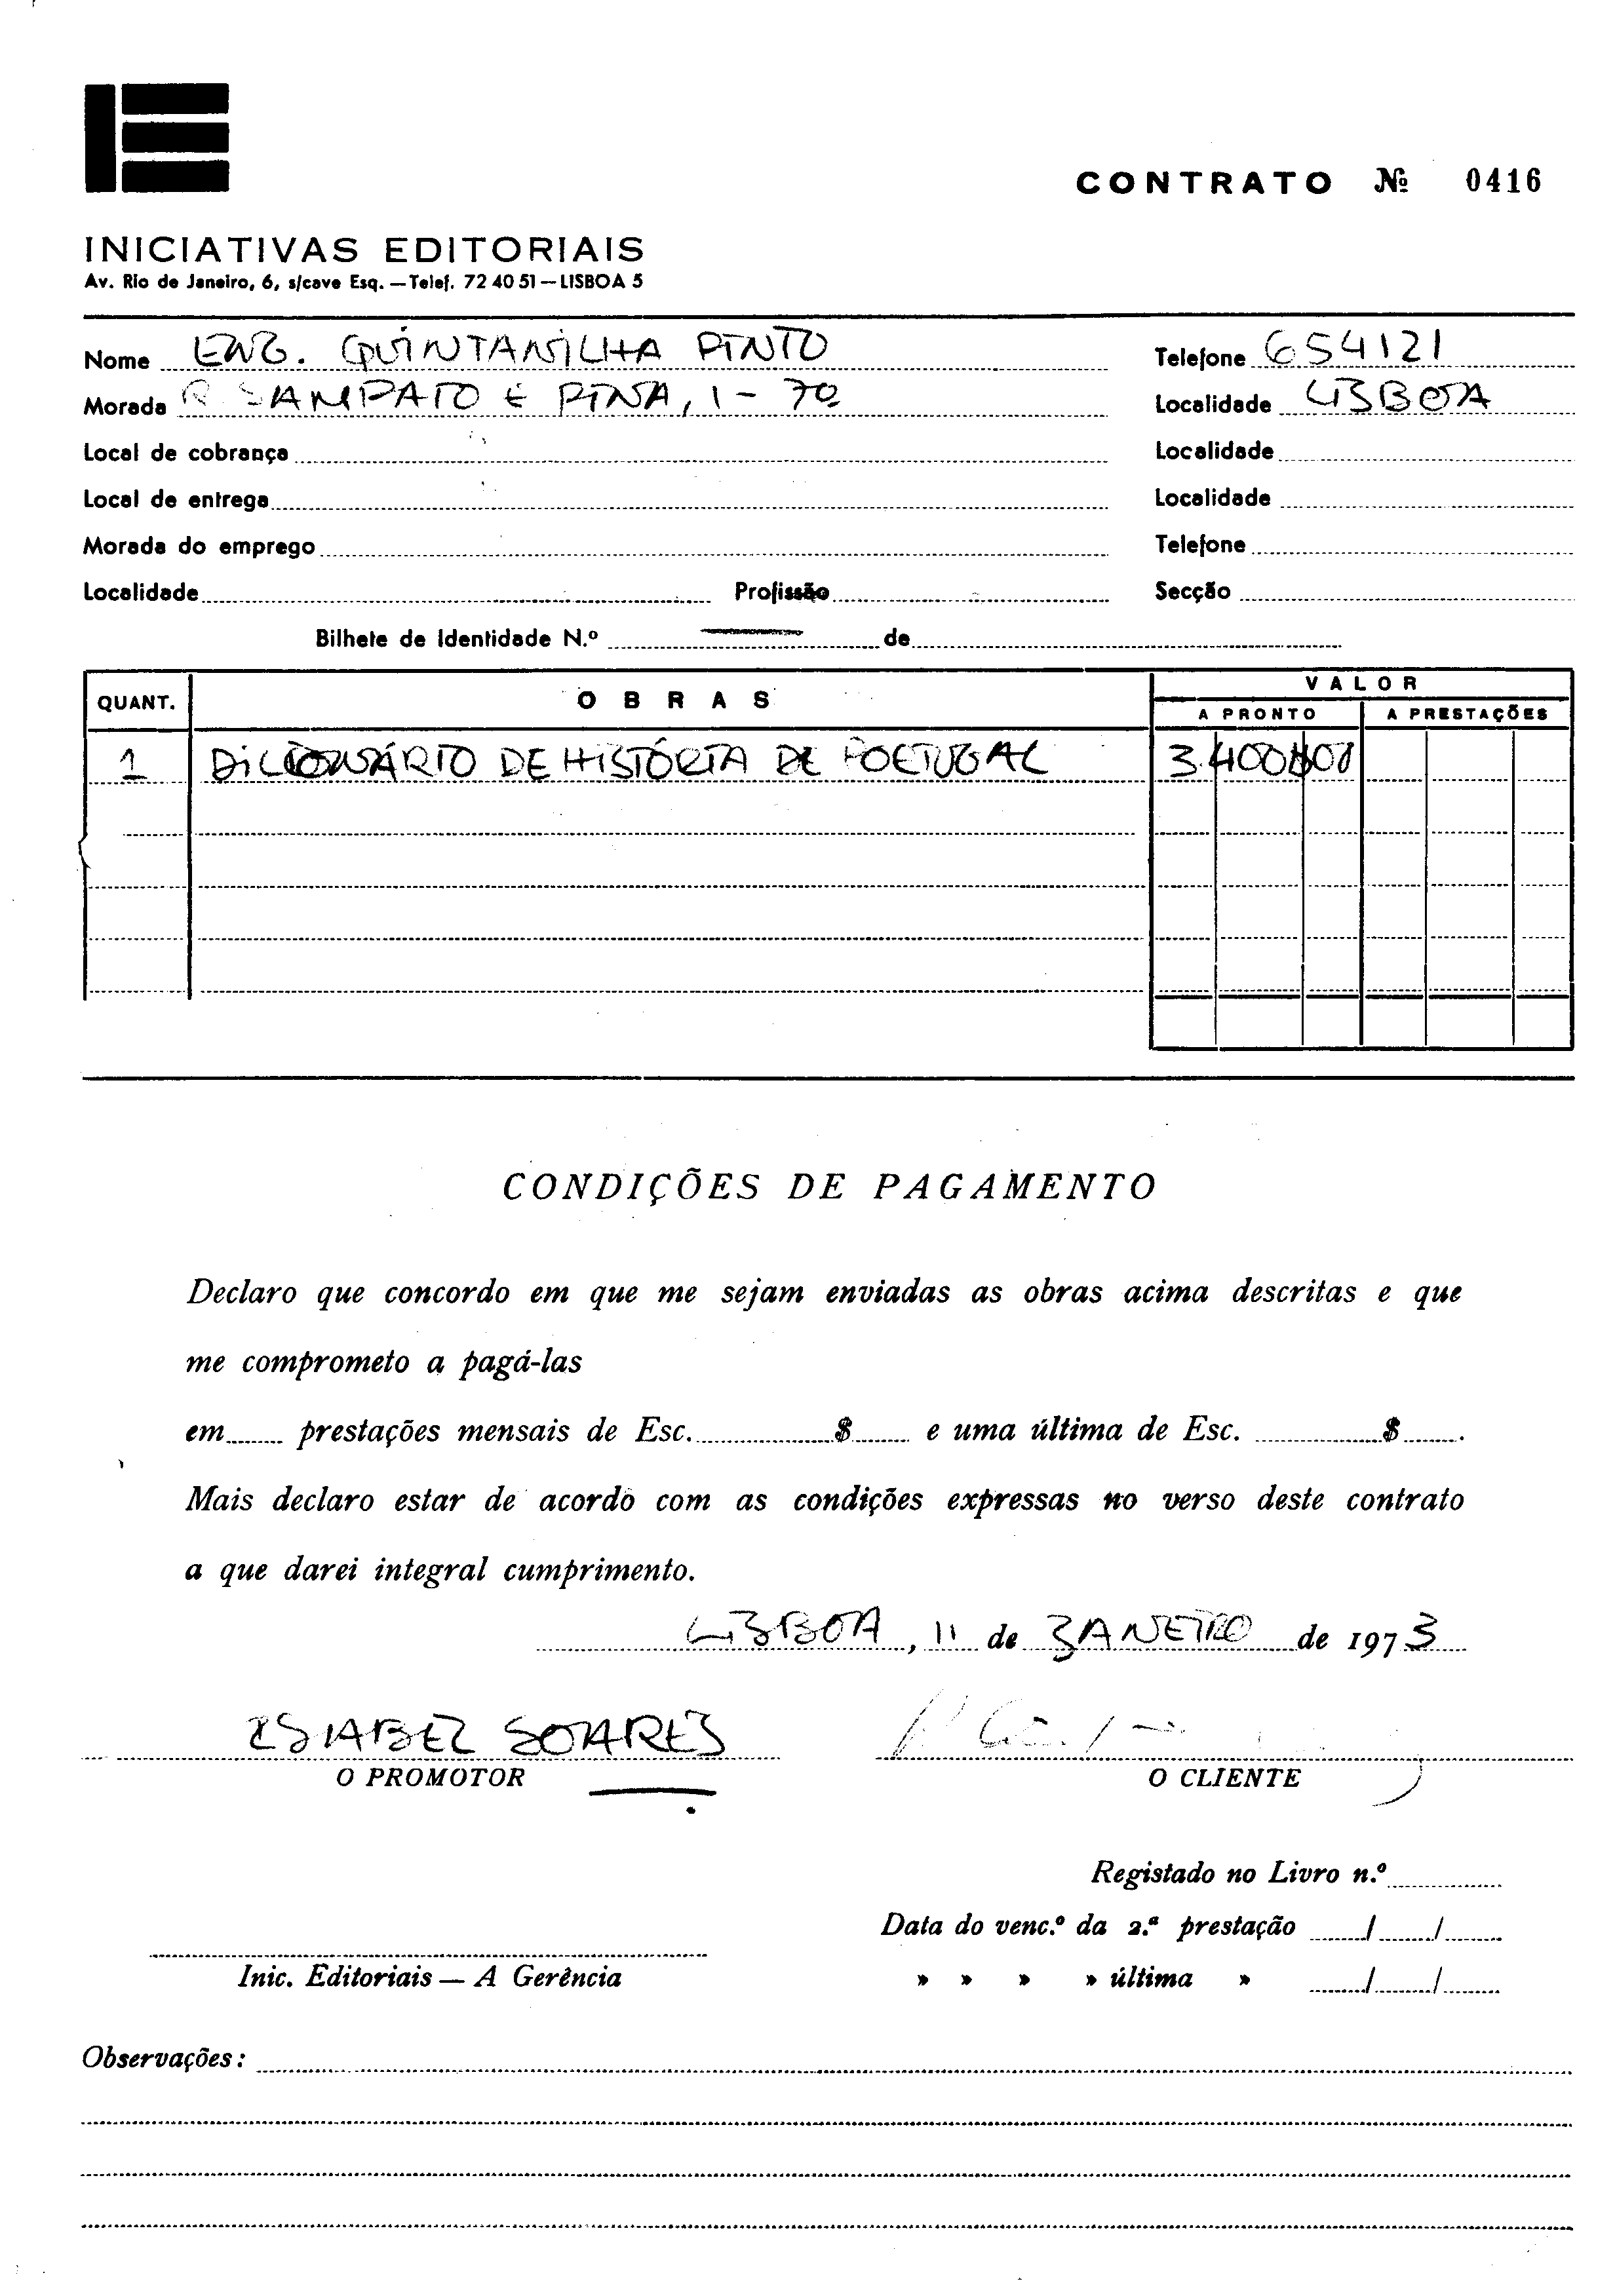 CONTRATO Nº 0416
INICIATIVAS EDITORIAIS
Av. Rio de Janeiro, 6, s/cave Esq. — Telef. 72 40 51 — LISBOA 5
Nome ENG. QUINTANILHA PINTO Telefone 654121
Morada R SAMPAIO E PINA, 1 - 7º Localidade LISBOA
Local de cobrança Localidade
Local de entrega Localidade
Morada do emprego Telefone
Localidade Profissão Secção
Bilhete de Identidade N.º — de
QUANT. OBRAS VALOR
A PRONTO A PRESTAÇÕES
1 DICIONÁRIO DE HISTÓRIA DE PORTUGAL 3.400$00
CONDIÇÕES DE PAGAMENTO
Declaro que concordo em que me sejam enviadas as obras acima descritas e que
me comprometo a pagá-las
em prestações mensais de Esc. $ e uma última de Esc. $ .
Mais declaro estar de acordo com as condições expressas no verso deste contrato
a que darei integral cumprimento.
LISBOA, 11 de JANEIRO de 1973
ISABEL SOARES
O PROMOTOR O CLIENTE
Registado no Livro n.º
Data do venc.º da 2.ª prestação / /
Inic. Editoriais — A Gerência » » » » última » / /
Observações: